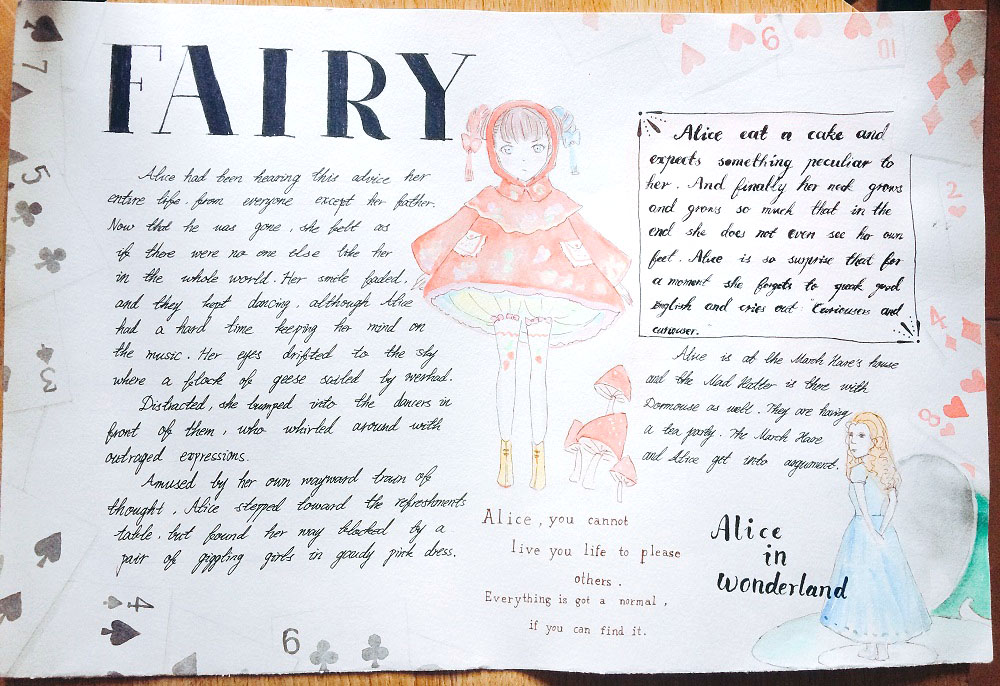 FAIRY
Alice had been hearing this advice her
entire life from everyone except her father.
Now that he was gone, she felt as
if there were no one else like her
in the whole world. Her smile faded,
and they kept dancing, although Alice
had a hard time keeping her mind on
the music. Her eyes drifted to the sky
where a flock of geese sailed by overhead.
Distracted, she bumped into the dancers in
front of them, who whirled around with
outraged expressions.
Amused by her own wayward train of
thought, Alice stepped toward the refreshments
table, but found her way blocked by a
pair of giggling girls in gaudy pink dress.
Alice eat a cake and
expects something peculiar to
her. And finally her neck grows
and grows so much that in the
end she does not even see her own
feet. Alice is so surprise that for
a moment she forgets to speak good
English and cries out "Curiousers and
curiouser."
Alice is at the March Hare's house
and the Mad Hatter is there with
Dormouse as well. They are having
a tea party. The March Hare
and Alice get into argument.
Alice, you cannot
live you life to please
others.
Everything is got a normal,
if you can find it.
Alice
in
wonderland
7
5
3
4
6
9
10
2
4
8